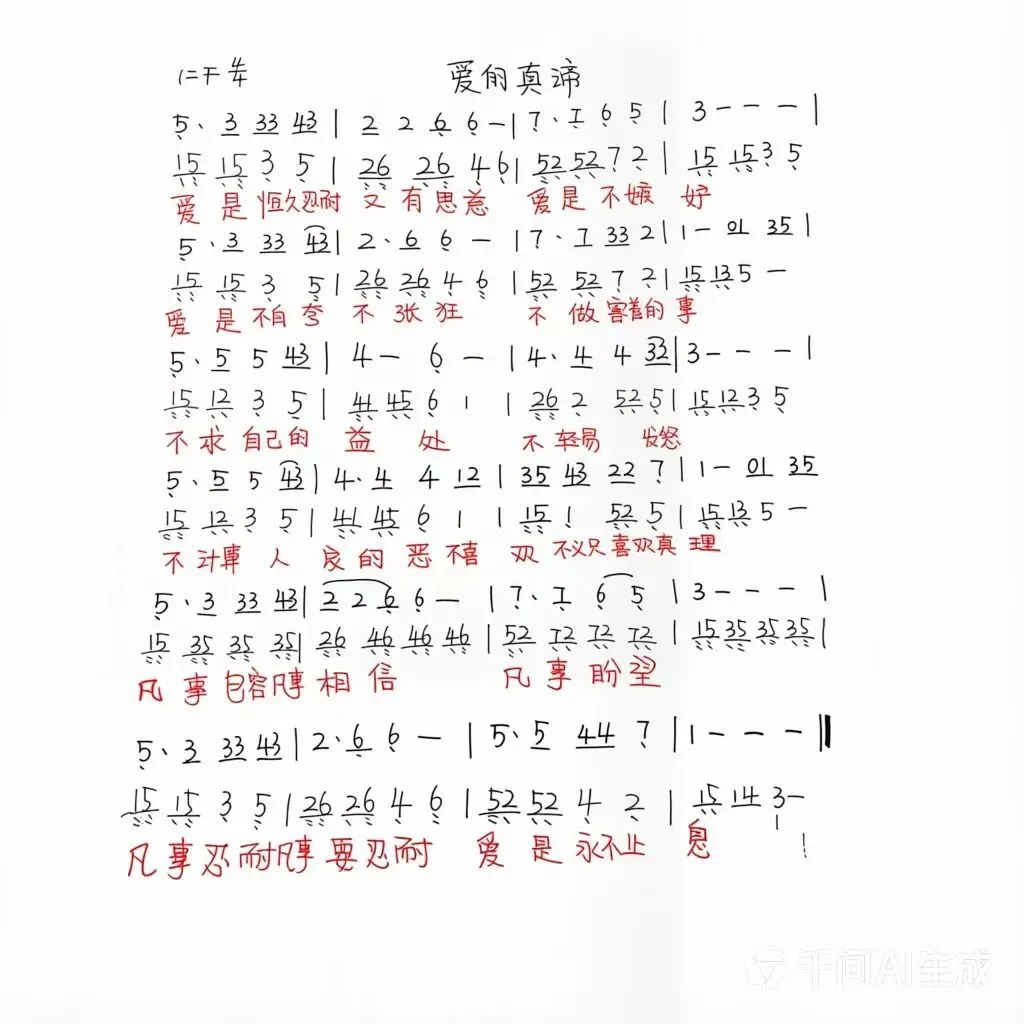 1=F 4/4 爱的真谛
5· 3 33 43 | 2 2 6 6 — | 7· 7 6 5 | 3 — — — |
15 15 3 5 | 26 26 4 6 | 52 52 7 2 | 15 15 3 5
爱 是 恒久忍耐 又 有 恩慈 爱 是 不 嫉 妒
5· 3 33 43 | 2· 6 6 — | 7· 7 33 2 | 1 — 01 35 |
15 15 3 5 | 26 26 4 6 | 52 52 7 2 | 15 13 5 —
爱 是 不自 夸 不 张 狂 不 做 害羞的 事
5· 5 5 43 | 4 — 6 — | 4· 4 4 32 | 3 — — — |
15 12 3 5 | 41 45 6 1 | 26 2 52 5 | 15 12 3 5
不 求 自己的 益 处 不 轻易 发怒
5· 5 5 43 | 4· 4 4 12 | 35 43 22 7 | 1 — 01 35
15 12 3 5 | 41 45 6 1 | 15 1 52 5 | 15 13 5 —
不 计算 人 的 恶 不 喜 欢 不义只 喜欢真 理
5· 3 33 43 | 2 2 6 6 — | 7· 7 6 5 | 3 — — — |
15 35 35 35 | 26 46 46 46 | 52 72 72 72 | 15 35 35 35 |
凡 事 包容凡事 相 信 凡 事 盼 望
5· 3 33 43 | 2· 6 6 — | 5· 5 44 7 | 1 — — — ‖
15 15 3 5 | 26 26 4 6 | 52 52 4 2 | 15 14 3 —
凡 事 忍 耐凡事 要 忍耐 爱 是 永不止 息
千问AI生成